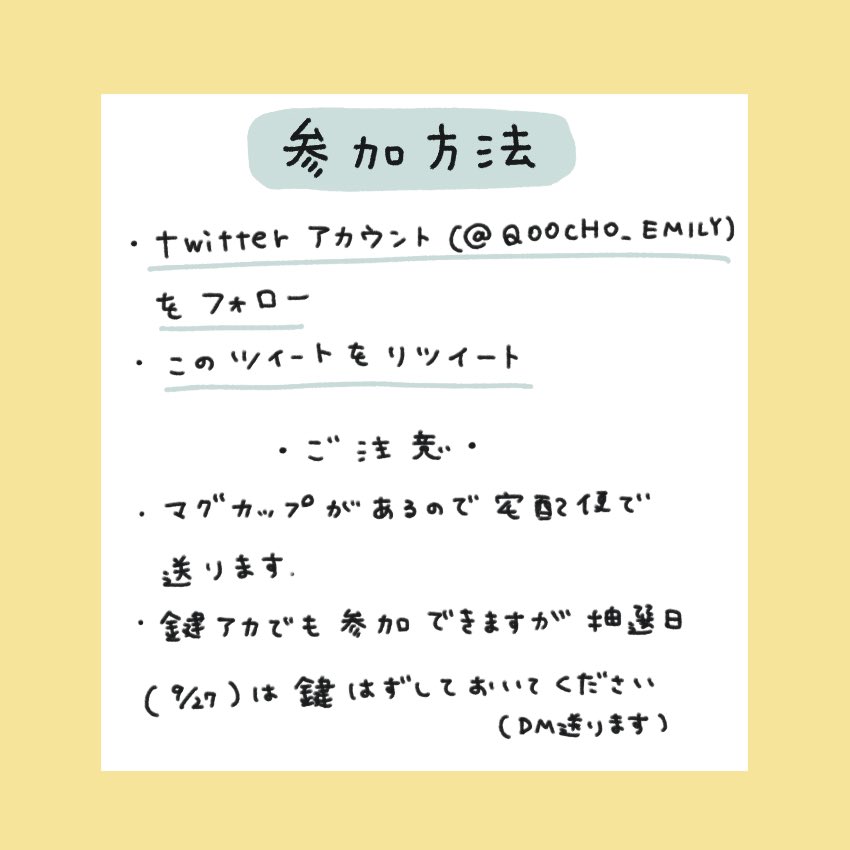 参加方法
・twitter アカウント (@QOOCHO_EMILY)
を フォロー
・このツイートを リツイート
・ご注意・
・マグカップがあるので 宅配便で
送ります.
・鍵アカでも 参加できますが 抽選日
(9/27)は 鍵はずしておいてください
(DM送ります)